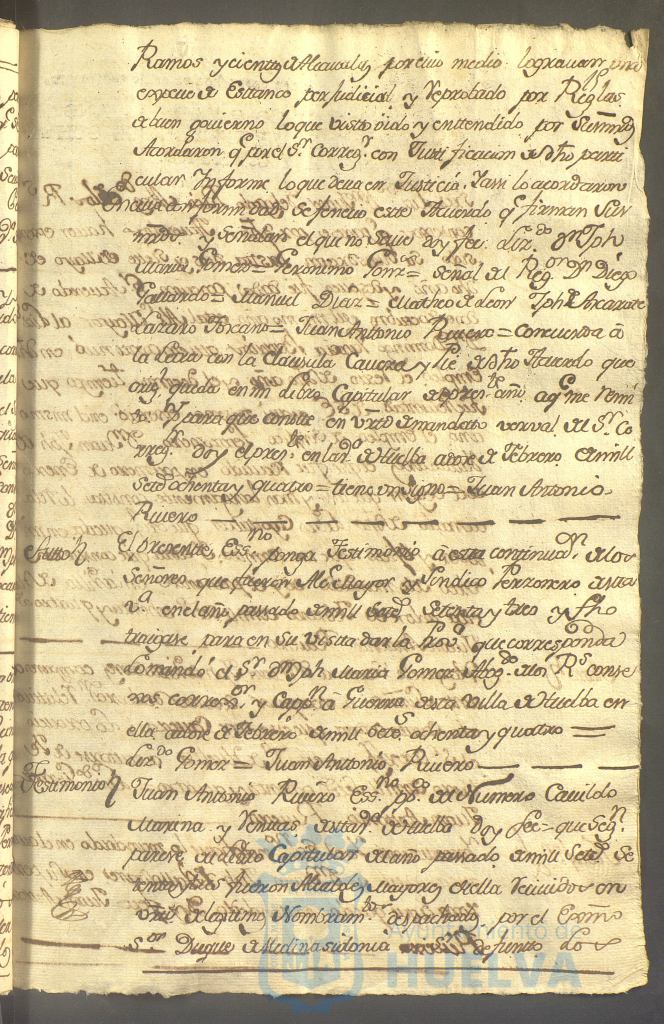 Ramos y cientos de Alcavalas, por cuio medio lograuan una
especie de Esttanco perJudicial y Reprobado por Reglas
de buen gouierno loque visto oido y enttendido por Sus mrds
Acordaron q.e por el S.r Correg.r con Justificacion de dho parti
cular Ynforme loque deua en Justicia; Y assi lo acordaron
en cuia conformidad se fenecio este Acuerdo q.e firman Sus
mrds. y Señalan el que no Saue doy fee. Liz.do D.n Jph
Maria Gomez = Geronimo = Señal del Reg.r D.n Diego
= Manuel Diaz = de Leon Jph
Lazaro = Juan Antonio Riuero = Concuerda a
la Letra con la Clausula Cauera y Pie de dho Acuerdo que
orig.l queda en mi Libro Capitular de pres.te año, aq.e me remi
to y para que conste en virtd de mandatto verval del S.r Co
rreg.r doy el pres.te en la v.a de Huelba a doze de Febrero de mill
Setez.s ochenta y quatro = tiene un Signo = Juan Antonio
Riuero
Autto El presente Ess.no ponga Testimonio a esta continuaz.n de los
Señores que fueron Alc.e Mayor y Sindico Perzonero de esta
v.a en el año passado de mill Setez.s Setenta y tres y fho
traigase para en Su vista dar la Prov.a que corresponda
Lo mando el S.r D.n Jph Maria Gomez Abog.do de los R.s Conse
jos correg.or y Capp.n a Guerra de esta Villa de Huelba en
ella a doze de Febrero de mill Setez.s ochenta y quattro =
Liz.do Gomez = Juan Antonio Riuero
Testimonio Juan Antonio Riuero Ess.no pp.co del Numero Cauildo
Marina y Rentas de esta v.a de Huelba Doy fee = que Seg.n
parece del Libro Capitular del año passado de mill Setez.s Se
tenta y tres fueron Alcaldes Mayores de ella Reciuidos en
virtd de Nombram.tos despachados por el Exmo
S.or Duque de Medinasidonia defunto Los
Ayuntamiento de
HUELVA